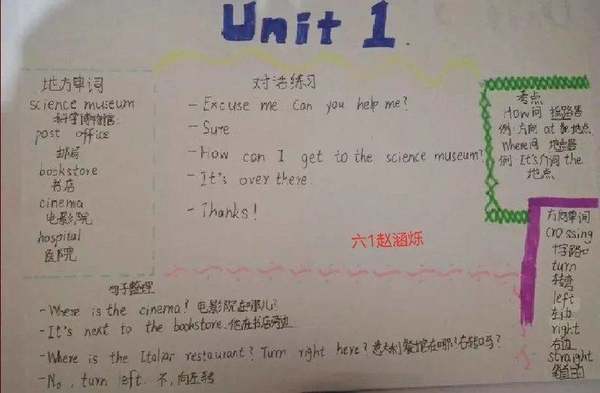 Unit 1
地方单词
science museum
科学博物馆
post office
邮局
bookstore
书店
cinema
电影院
hospital
医院
对话练习
- Excuse me can you help me?
- Sure
- How can I get to the science museum?
- It's over there.
- Thanks!
六1赵涵烁
考点
How问 指路答
例 方向 at the 地点
Where问 地点答
例 It's 介词 the
地点
方向单词
crossing
十字路口
turn
转弯
left
左边
right
右边
straight
句子整理
- Where is the cinema? 电影院在哪儿?
- It's next to the bookstore. 他在书店旁边
- Where is the Italar restaurant? Turn right here? 意大利餐馆在哪?右转吗?
- No, turn left. 不,向左转